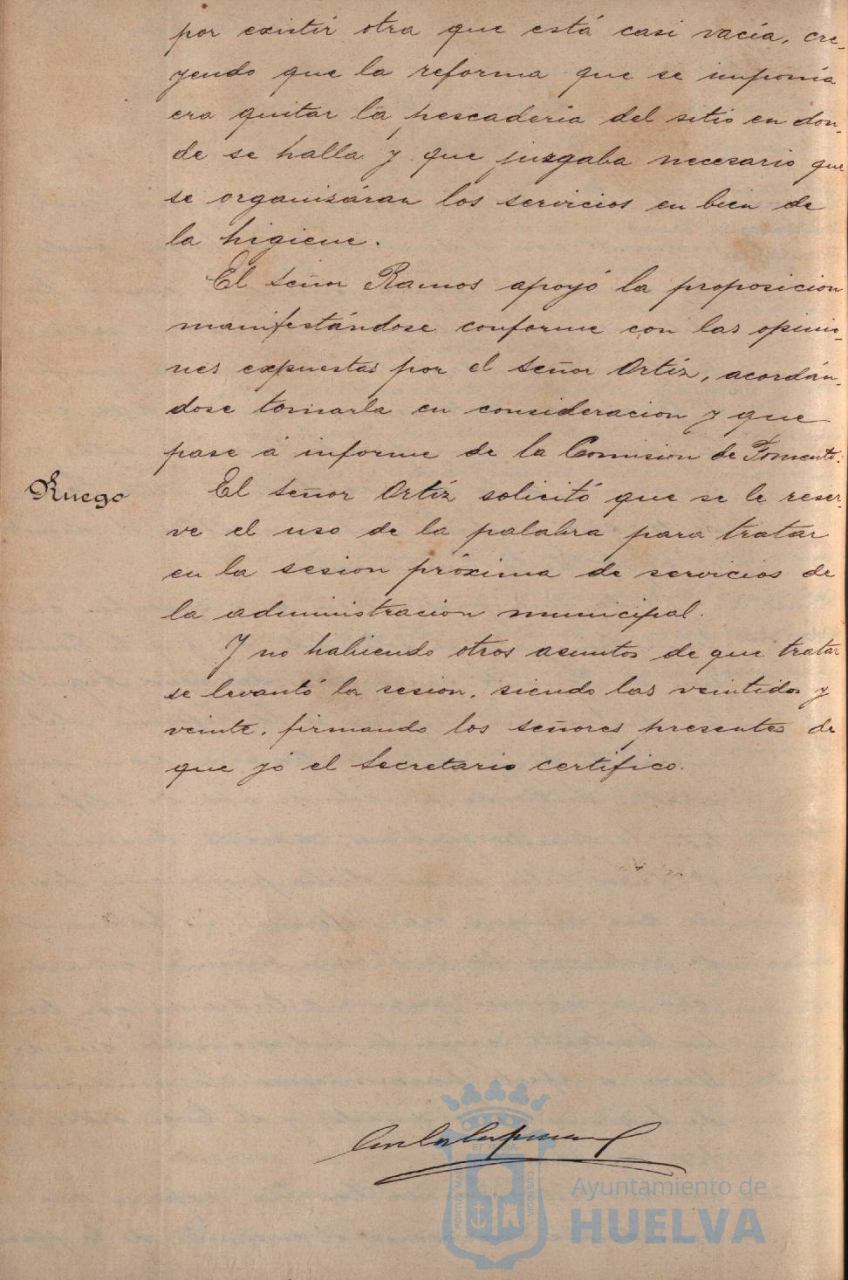 por existir otra que está casi vacía, cre-
yendo que la reforma que se imponía
era quitar la pescadería del sitio en don-
de se halla y que juzgaba necesario que
se organizáran los servicios en bien de
la higiene.
El señor Ramos apoyó la proposicion
manifestándose conforme con las opinio-
nes expuestas por el señor Ortíz, acordán-
dose tomarla en consideracion y que
pase á informe de la Comision de Fomento.
Ruego
El señor Ortíz solicitó que se le reser-
ve el uso de la palabra para tratar
en la sesion próxima de servicios de
la administracion municipal.
Y no habiendo otros asuntos de que tratar
se levantó la sesion, siendo las veintidos y
veinte, firmando los señores presentes de
que yó el Secretario certifico.
Ayuntamiento de
HUELVA